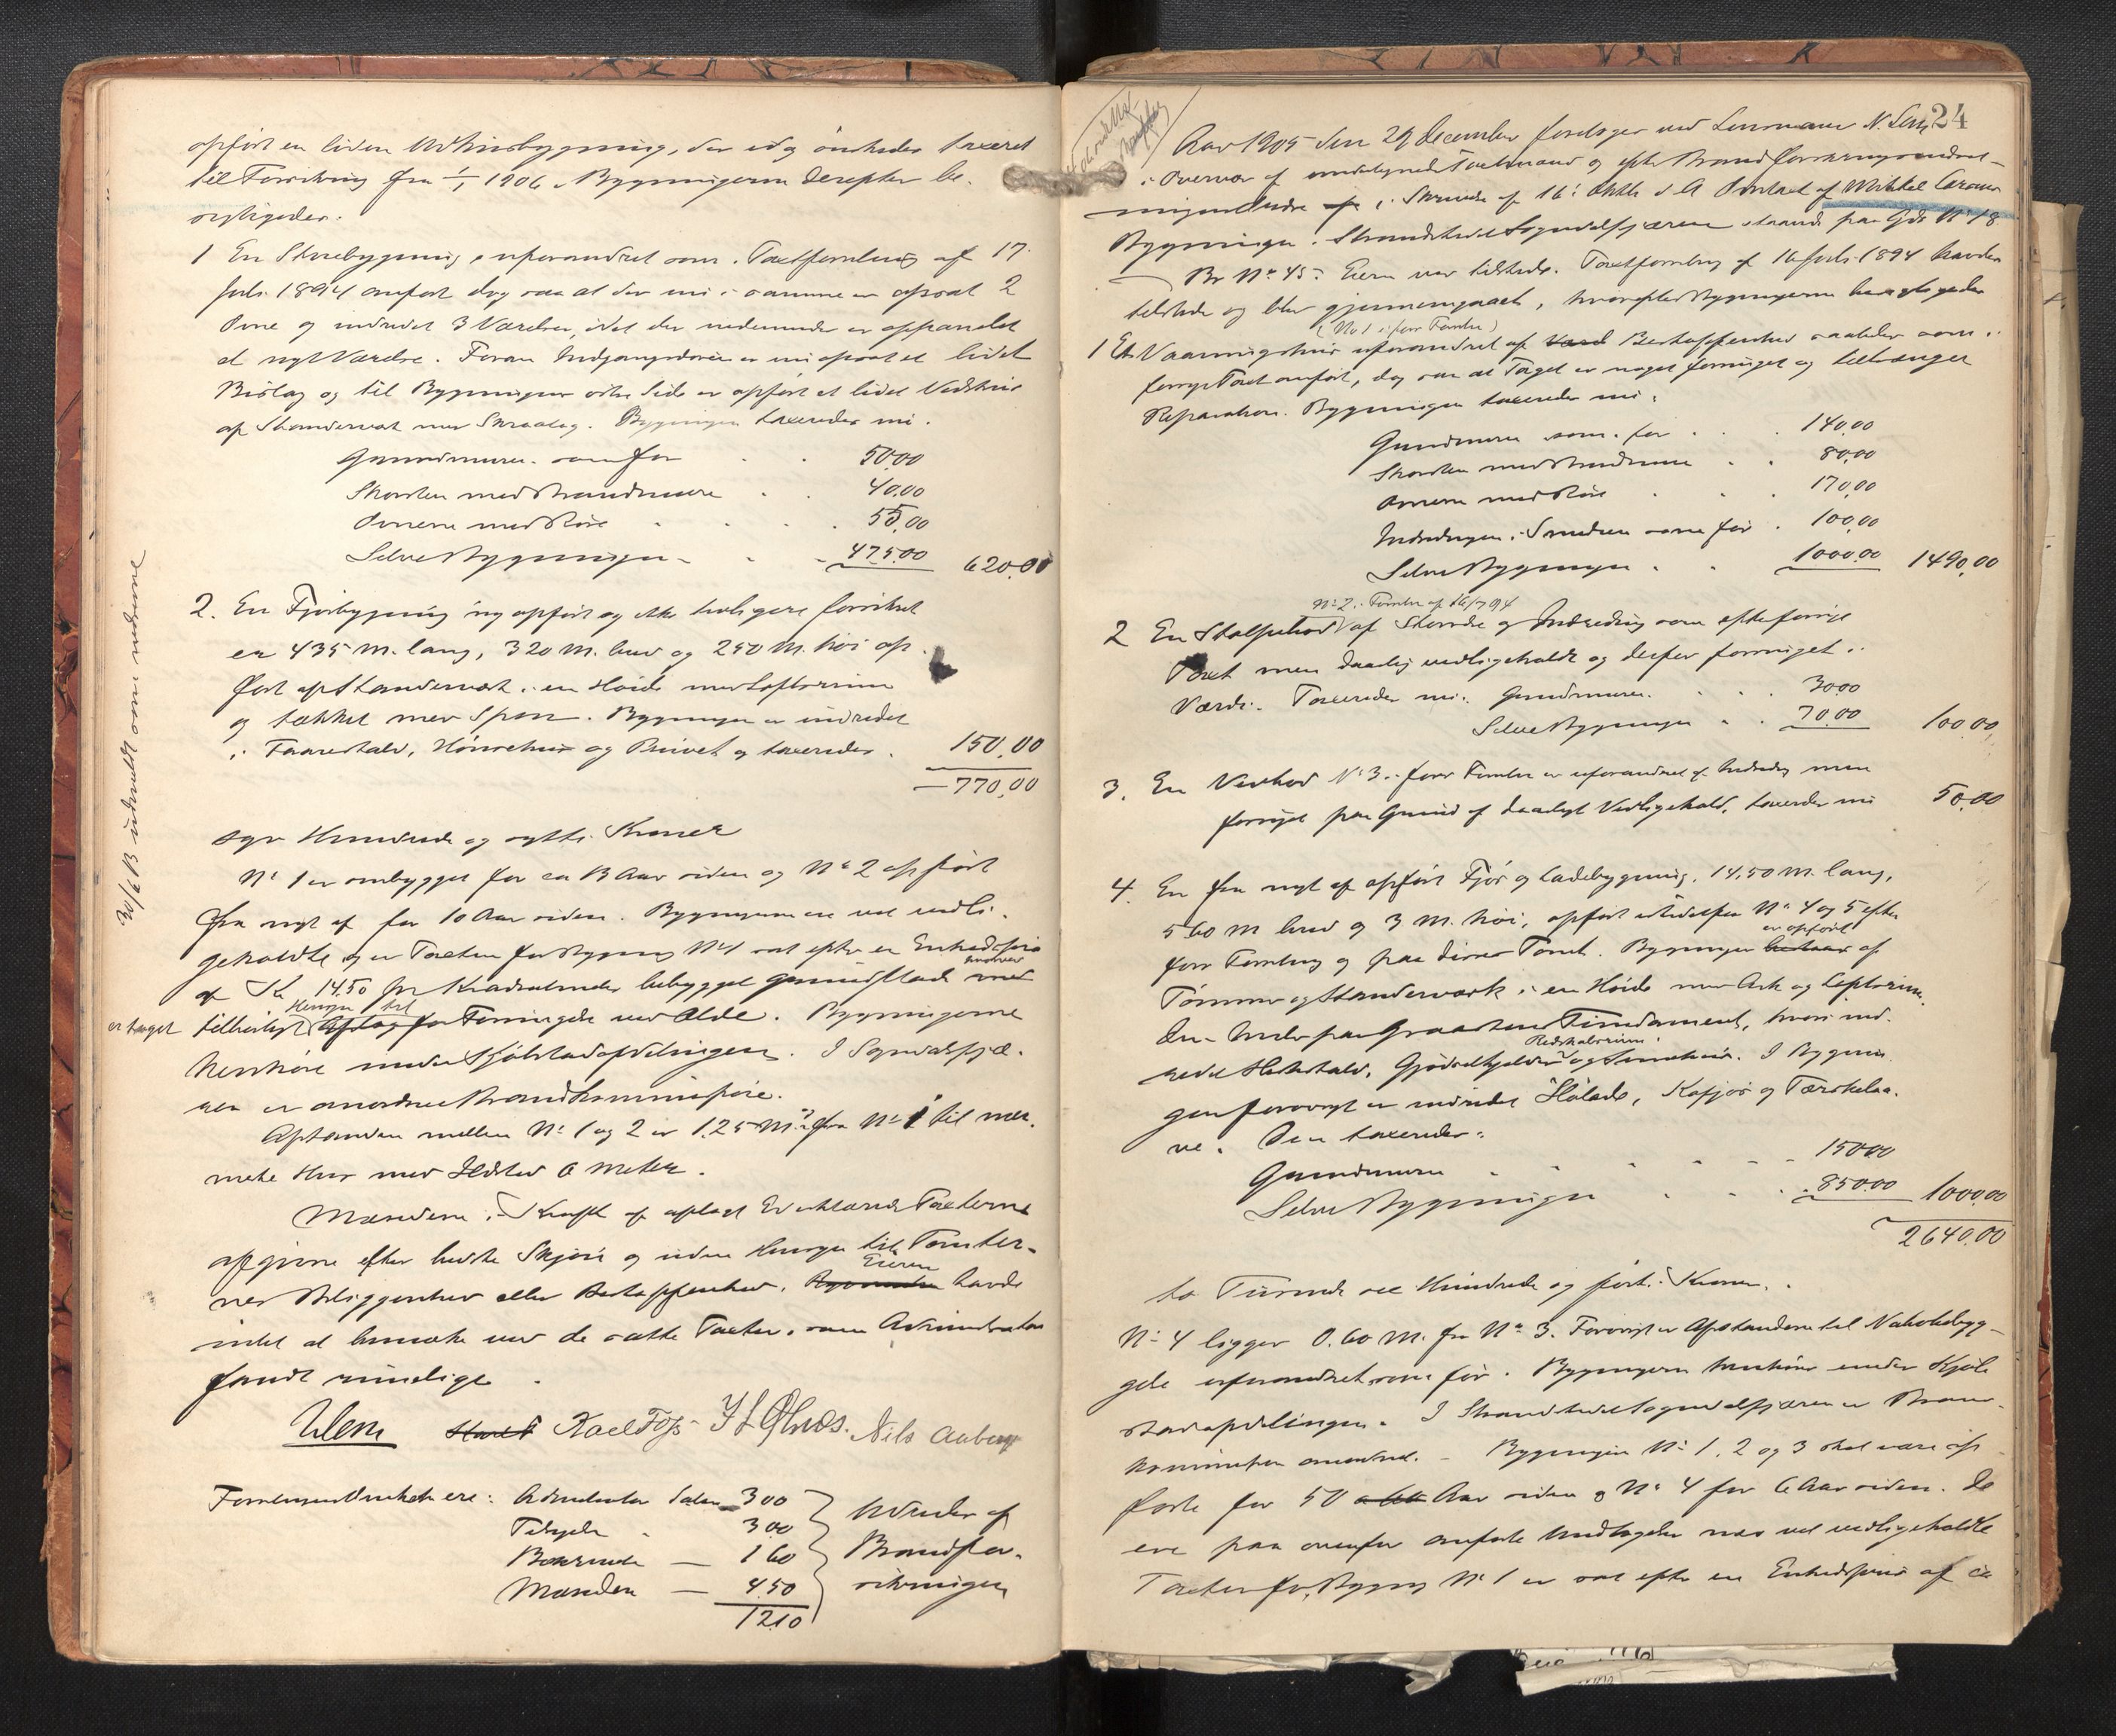 opført en liden Udhusbygning, der idag ønskedes taxeret
til Forsikring fra 1/1 1906. Bygningerne derefter be-
sigtigedes:
1 En Stuebygning, uforandret som i Taxtforretning af 17.
Juli 1894 anført dog saa at der nu i samme er opsat 2
Ovne og indredet 3 Værelser, idet der nedenunder er oppanelet
et nyt Værelse. Foran Indgangsdøren er nu opsat et lidet
Bislag og til Bygningens østre Side er opført et lidet Vedskur
af Standerværk med Skraatag. Bygningen taxeredes nu:
Grundmuren som før . . 50.00
Skorsten med Brandmure . . 40.00
Ovnene med Rør . . . 55.00
Selve Bygningen . . 475.00 620.00
2. En Fjøsbygning ny opført og ikke tidligere forsikret
er 4.35 M. lang, 3.20 M. bred og 2.50 M. høi op-
ført af Standerværk i en Høide med Loftsrum
og tækket med Spon. Bygningen er indredet
i Faarestald, Hønsehus og Privet og taxeredes . 150.00
770.00
syv Hundrede og sytti Kroner
No 1 er ombygget for ca 13 Aar siden og No 2 opført
fra nyt af for 10 Aar siden. Bygningerne ere vel vedli-
geholdte og er Taxten for Bygning No 1 sat efter en Enhedspris
af Kr 14.50 pr Kvadratmeter bebygget Grundflade hvorved
er taget tilbørligt Hensyn til Forringelse ved Ælde. Bygningerne
henhøre under Kjølstadafdelingen. I Sogndalsfjæ-
ren er anordnet Brandkommission.
Afstanden mellem No 1 og 2 er 1.25 M. og fra No 1 til nær-
meste Hus med Ildsted 6 Meter.
Mændene i Kraft af aflagt Ed erklærede Taxterne
afgivne efter bedste Skjøn og uden Hensyn til Tomter-
nes Beliggenhed eller Beskaffenhed. Eieren havde
intet at bemærke ved de satte Taxter, som Administrator
fandt rimelige.
N Lem Karl Foss Nils Aaberg
Forretningens Omkostn ere: Administrator Salær 3.00
Tilsyn . 3.00
Mændene — 4.50
12.10
Udredes af
Brandfor-
sikringen
30/6 13 udmeldt som nederne
24
Aar 1905 den 29 December foretoges ved Lensmand N. Lem
i Overvær af undertegnede Taxtmænd og efter Brandforsikringsindret-
i Skrivelse af 16 Oktbr d. A. Omtaxt af Mikkel Larsens
Bygninger i Strandstedet Sogndalsfjæren staaende paa Gds No 18
Br No 45. Eieren var tilstede. Taxtforretning af 16 Juli 1894 havdes
tilstede og blev gjennemgaaet, hvorefter Bygningerne besigtigedes
(No 1 i forr Forretn)
1 Et Vaaningshus uforandret af Beskaffenhed saaledes som i
forrige Taxt anført, dog saa at Taget er noget forringet og tiltrænger
Reparation. Bygningen taxeredes nu:
Grundmuren som før . . 140.00
Skorsten med Brandmure . . 80.00
Ovnene med Rør . . 170.00
Indredningen i Smedien som før . 100.00
Selve Bygningen . . 1000.00 1490.00
No 2 i Forretn af 16/7 94
2 En Stolpebod af Størrelse og Indredning som efter forrige
Taxt men daarlig vedligeholdt og derfor forringet i
Værdi. Taxeredes nu: Grundmuren . . 30.00
Selve Bygningen . . 70.00 100.00
3. En Vedbod No 3 i forr Forretn er uforandret af Indredn men
forringet paa Grund af daarligt Vedligehold, taxeredes nu 50.00
4. En fra nyt af opført Fjøs og Ladebygning, 14.50 M. lang,
5.60 M bred og 3 M. høi, opført istedetfor No 4 og 5 efter
forr Forretning og paa disses Tomt. Bygningen er opført af
Tømmer og Standerværk i en Høide med Ark og Loftsrum.
Den hviler paa Graastens Fundament, hvori ind-
redet Hestestald, Gjødselkjelder Redskabsrum og Smedie. I Bygnin-
gen forøvrigt er indredet Høilade, Kofjøs og Tærskelaa-
ve. Den taxeredes:
Grundmuren . . . 150.00
Selve Bygningen . . . 850.00 1000.00
2640.00
to Tusinde sex Hundrede og førti Kroner.
No 4 ligger 0.60 M. fra No 3. Forøvrigt er Afstandene til Nabobebyg-
gelse uforandret som før. Bygningerne henhører under Kjøl-
stadafdelingen. I Strandstedet Sogndalsfjæren er Brand-
kommission anordnet. – Bygningen No 1, 2 og 3 skal være op-
førte for 50 Aar siden og No 4 for 6 Aar siden. De
ere paa ovenfor anførte Undtagelser nær vel vedligeholdte
Taxten for Bygning No 1 er sat efter en Enhedspris af ca